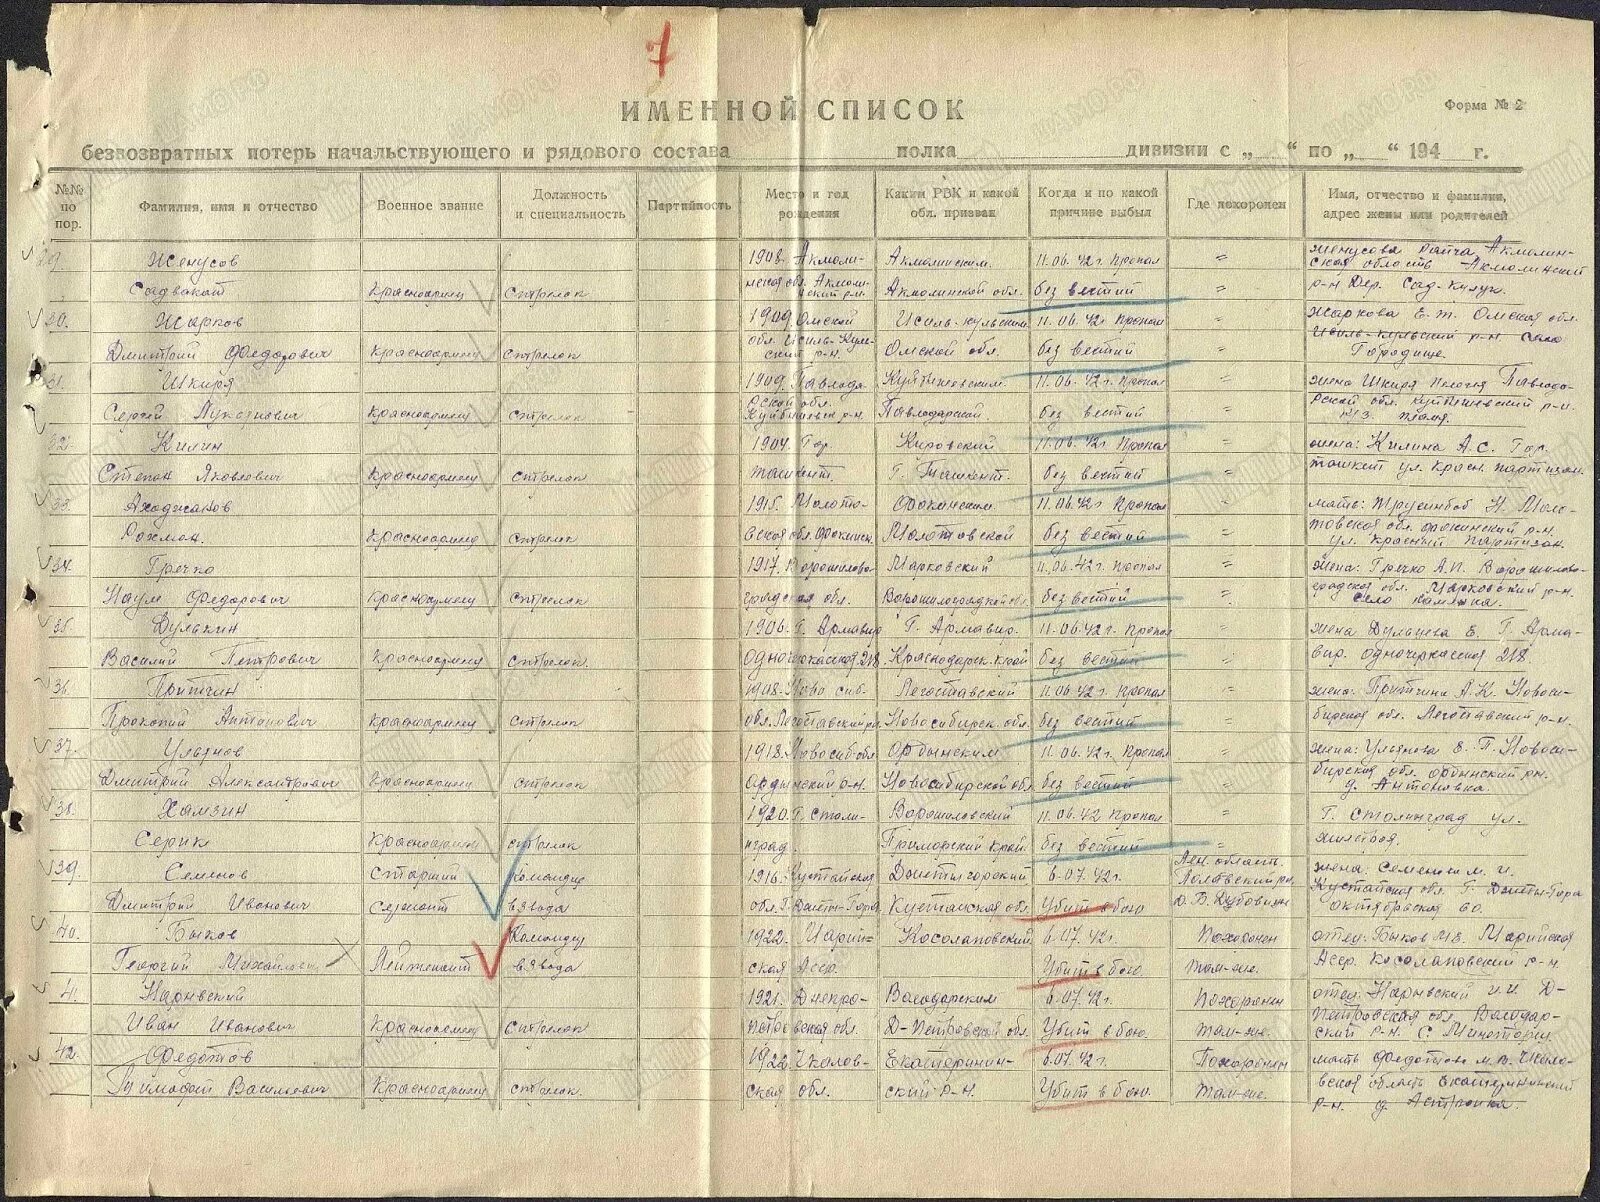 7
ИМЕННОЙ СПИСОК
Форма № 2
безвозвратных потерь начальствующего и рядового состава полка дивизии с „ “ по „ “ 194 г.
№№ по пор. Фамилия, имя и отчество Военное звание Должность и специальность Партийность Место и год рождения Каким РВК и какой обл. призван Когда и по какой причине выбыл Где похоронен Имя, отчество и фамилия, адрес жены или родителей
29. Женусов 1908. Акмоли- Акмолинским. 11.06.42 г. Пропал " Женусова Акмолин-
Садвакат Красноармеец Стрелок Акмолинской обл. без вестий " ская область Акмолинский р-н Дер.
30. Жарков 1909. Омской Исиль-кульским 11.06.42 г. Пропал " Жаркова Е.Т. Омская обл.
Дмитрий Федорович Красноармеец стрелок обл. Исиль-Куль- ский р-н. Омской обл. без вестий " Исиль-кульский р-н село Городище.
31. Шкиря 1909. Павлода- Куйбышевским. 11.06.42 г. Пропал " жена Шкиря Павлодо-
Сергей Лукьянович Красноармеец стрелок рской обл. Куйбышевск. р-н. Павлодарской. без вестий " рской обл. Куйбышевский р-н.
32. Килин 1904. Гор. Кировский 11.06.42 г. Пропал " жена: Килина А.С. Гор.
Степан Яковлевич Красноармеец стрелок Ташкент. Г. Ташкент. без вестий " Ташкент ул. Красн. партизан.
33. Аходжаков 1915. Молото- 11.06.42 г. Пропал " мать: Н. Моло-
Рахман. Красноармеец стрелок вская обл. Молотовской без вестий " товская обл. р-н. ул. Красный партизан.
34. Гречко 1917. Ворошилово- Марковский 11.06.42 г. Пропал " жена: Гречко А.П. Ворошилово-
Наум Федорович Красноармеец стрелок градская обл. Ворошилоградской обл. без вестий " градская обл. Марковский р-н. село
35. Дулькин 1906. Г. Армавир Г. Армавир. 11.06.42 г. Пропал " жена Е. Г. Арма-
Василий Петрович Красноармеец стрелок. одночеркасская 218. Краснодарск. край без вестий " вир. одночеркасская 218.
36. Притчин 1908. Ново сиб. Легостаевский 11.06.42 г. Пропал " жена: Притчина А.К. Новоси-
Прокопий Антонович Красноармеец стрелок обл. Легостаевский р-н Новосибирск. обл. без вестий " бирская обл. Легостаевский р-н.
37. Ульянов 1918. Новосиб. обл. Ордынским 11.06.42 г. Пропал " жена: Ульянова Е.П. Новоси-
Дмитрий Александрович Красноармеец стрелок Ордынский р-н. Новосибирской обл. без вестий " бирская обл. ордынский р-н. д. Антоновка.
38. Хамзин 1920. Г. Стали- Ворошиловский 11.06.42 Пропал " Г. Сталинград ул.
Серик Красноармеец стрелок нград. Приморский край. без вестий "
39. Семенов Старший Командир 1916. Кустайская Джетыгорский 6.07.42 г. Лен. область. жена. Семенова М.И.
Дмитрий Иванович Сержант взвода обл. Г. Джеты-Гора Кустайская обл. Убит в бою Кустайская обл. Г. Джеты-Гора октябрьская 60.
40. Быков Командир 1922. Марий- Косолаповский 6.07.42 г. Похоронен отец: Быков М.Е. Марийская
Георгий Михайлович Лейтенант взвода ская Асср. Убит в бою там-же. Асср. Косолаповский р-н.
41. Нарывский 1921. Днепро- Володарским 6.07.42 г. Похоронен отец: Нарывский И.И. Д-
Иван Иванович Красноармеец Стрелок петровская обл. Д-Петровской обл. Убит в бою. там-же. Петровская обл. Володар- ский р-н.
42. Федотов 1922. Чкалов- Екатеринин- 6.07.42 г. Похоронен мать Федотова М.В. Чкало-
Тимофей Васильевич Красноармеец стрелок. ская обл. ский р-н. Убит в бою. там-же. вская область Екатерининский р-н. д.